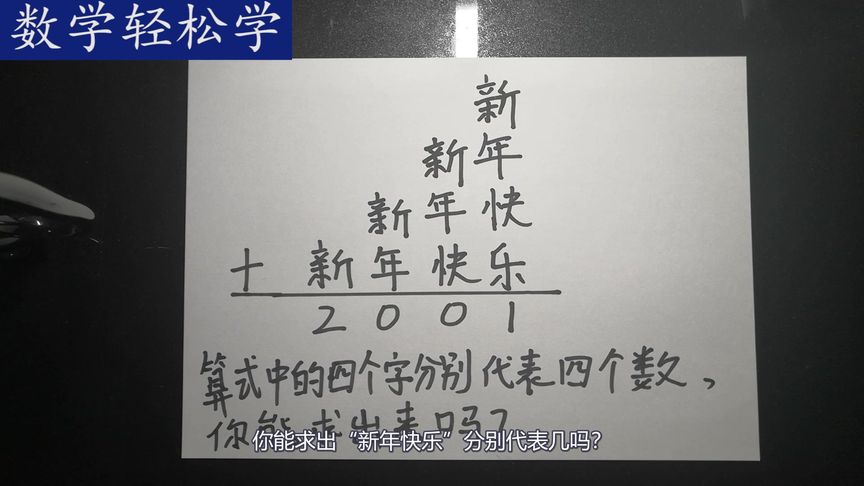 数学轻松学
新
新年
新年快
+ 新年快乐
2001
算式中的四个字分别代表四个数,
你能求出来吗?
你能求出“新年快乐”分别代表几吗?